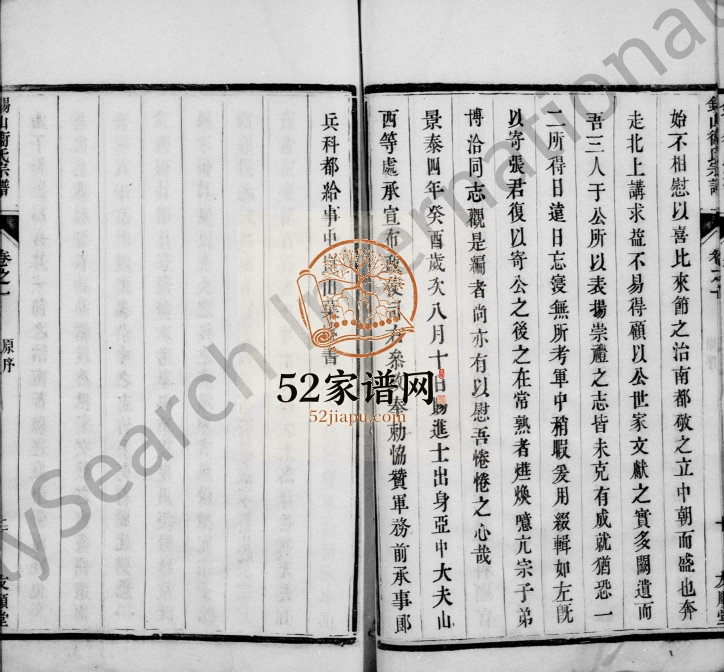 始不相慰以喜比來節之治南都敬之立中朝而盛也奔
走北上講求益不易得顧以公世家文獻之實多闕遺而
吾三人于公所以表揚崇禮之志皆未克有成就猶恐一
二所得日遠日忘寖無所考軍中稍暇爰用綴輯如左旣
以寄張君復以寄公之後之在常熟者燵煥噫亢宗子弟
博洽同志觀是編者尚亦有以慰吾惓惓之心哉
景泰四年癸酉歲次八月十日賜進士出身亞中大夫山
西等處承宣布政使司右參政奉勅恊贊軍務前承事郎
兵科都給事中崑山葉盛書
錫山衛氏宗譜
卷之一
原序
友順堂
52家谱网
52jiapu.com